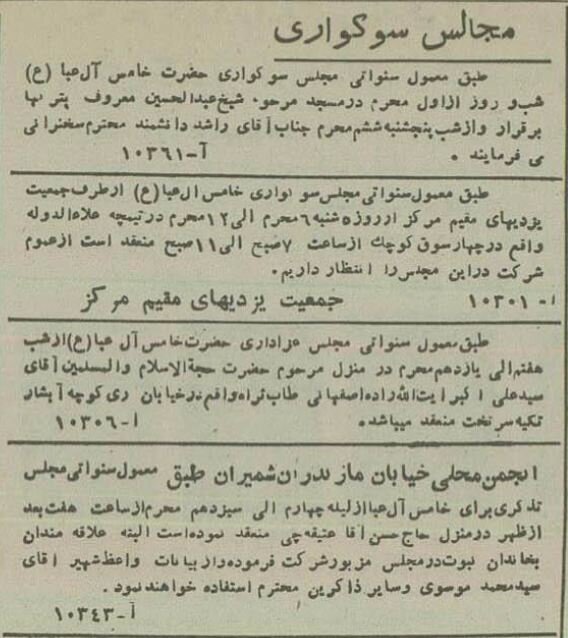 مجالس سوکواری
طبق معمول سنواتی مجلس سوکواری حضرت خامس آل‌عبا (ع)
شب و روز از اول محرم در مسجد مرحوم شیخ عبدالحسین معروف بترکها
برقرار و از شب پنجشنبه ششم محرم جناب آقای راشد دانشمند محترم سخنرانی
می فرمایند .
آ-۱۰۳۶۱
طبق معمول سنواتی مجلس سوگواری خامس آل عبا (ع) از طرف جمعیت
یزدیهای مقیم مرکز از روز ۵ شنبه ۶ محرم الی ۱۲ محرم در تیمچه علاءالدوله
واقع در چهار سوق کوچک از ساعت ۷ صبح الی ۱۱ صبح منعقد است از عموم
شرکت در این مجلس را انتظار داریم.
آ-۱۰۳۰۱ جمعیت یزدیهای مقیم مرکز
طبق معمول سنواتی مجلس عزاداری حضرت خامس آل عبا (ع) از شب
هفتم الی یازدهم محرم در منزل مرحوم حضرت حجة الاسلام والمسلمین آقای
سید علی اکبر آیت الله زاده اصفهانی طاب ثراه واقع در خیابان ری کوچه آبشار
تکیه سرتخت منعقد میباشد.
آ-۱۰۳۰۶
انجمن محلی خیابان مازندران شمیران طبق معمول سنواتی مجلس
تذکری برای خامس آل عبا از لیله چهارم الی سیزدهم محرم از ساعت هفت بعد
از ظهر در منزل حاج حسن آقا عتیقه چی منعقد نموده است البته علاقه مندان
بخاندان نبوت در مجلس مزبور شرکت فرموده و از بیانات واعظ شهیر آقای
سید محمد موسوی و سایر ذاکرین محترم استفاده خواهند نمود.
آ-۱۰۳۴۳